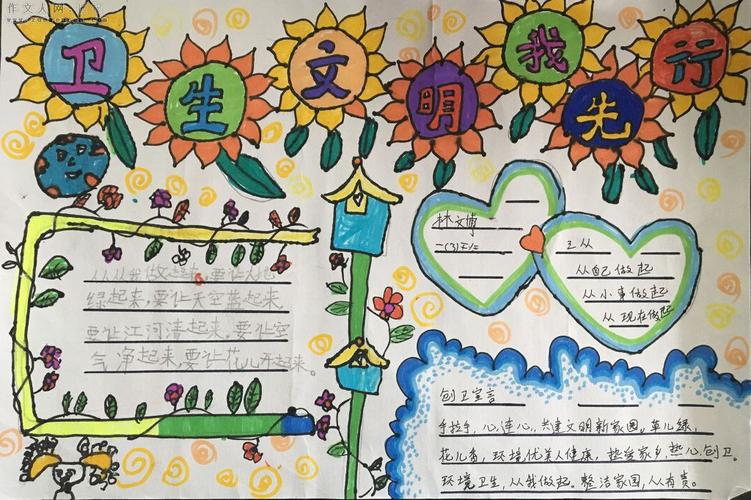 作文人网
卫生文明我先行
从从我做起来,要让大地
绿起来,要让天空蓝起来,
要让江河清起来,要让空
气净起来,要让花儿开起来。
林文博
一(3)班
三从
从自己做起
从小事做起
从现在做起
创卫宣言
手拉手,心连心,共建文明新家园,草儿绿,
花儿香,环境优美人健康,热爱家乡,热心创卫。
环境卫生,从我做起,整洁家园,人人有责。